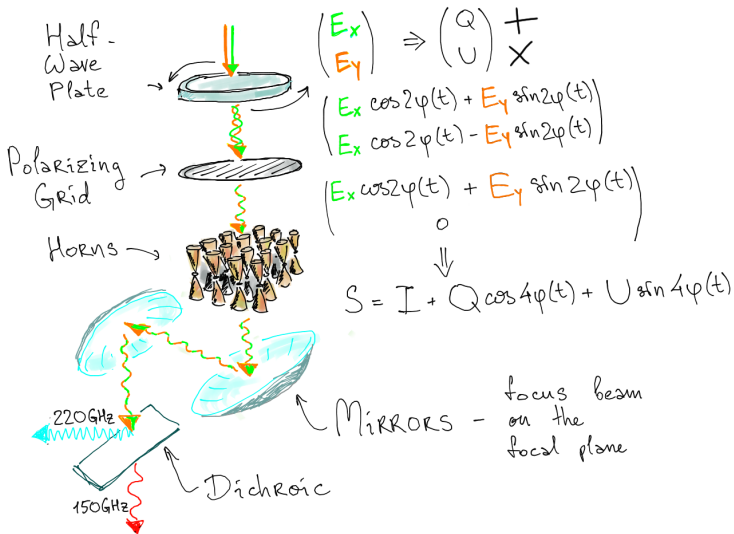 Half-
Wave
Plate
Polarizing
Grid
Horns
220GHz
150GHz
Dichroic
Mirrors - focus beam
on the
focal plane
(Ex
Ey) ⇒ (Q
U) + ×
(Ex cos2φ(t) + Ey sin2φ(t)
Ex cos2φ(t) - Ey sin2φ(t))
(Ex cos2φ(t) + Ey sin2φ(t)
0)
⇓
S = I + Q cos4φ(t) + U sin4φ(t)